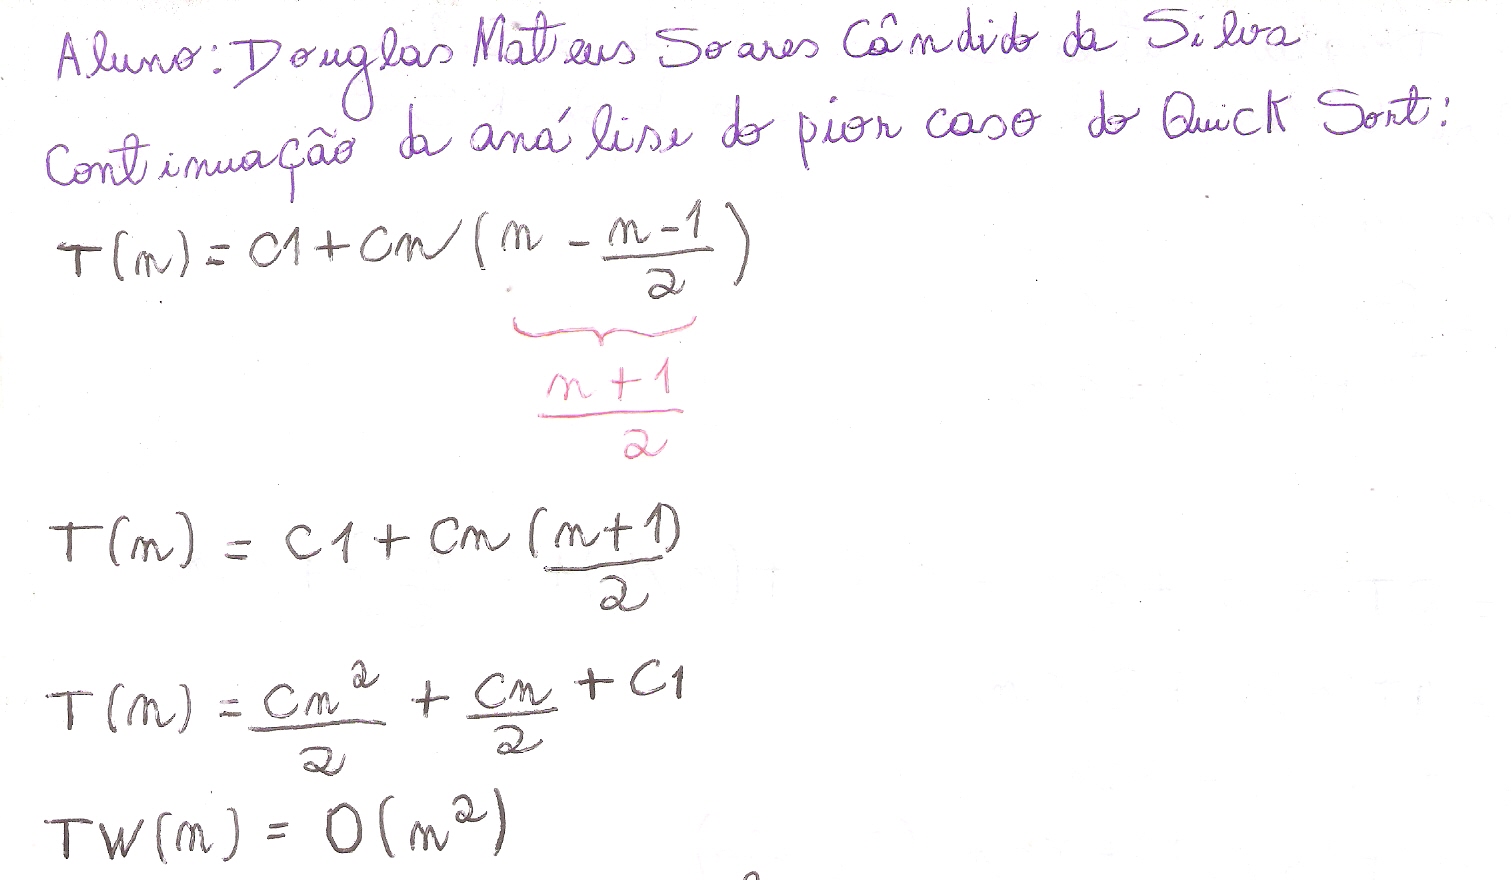 Aluno: Douglas Mateus Soares Cândido da Silva
Continuação da análise do pior caso do Quick Sort:
T(n) = C1 + Cn (n - n-1/2)
n+1/2
T(n) = C1 + Cn (n+1)/2
T(n) = Cn²/2 + Cn/2 + C1
TW(n) = O(n²)